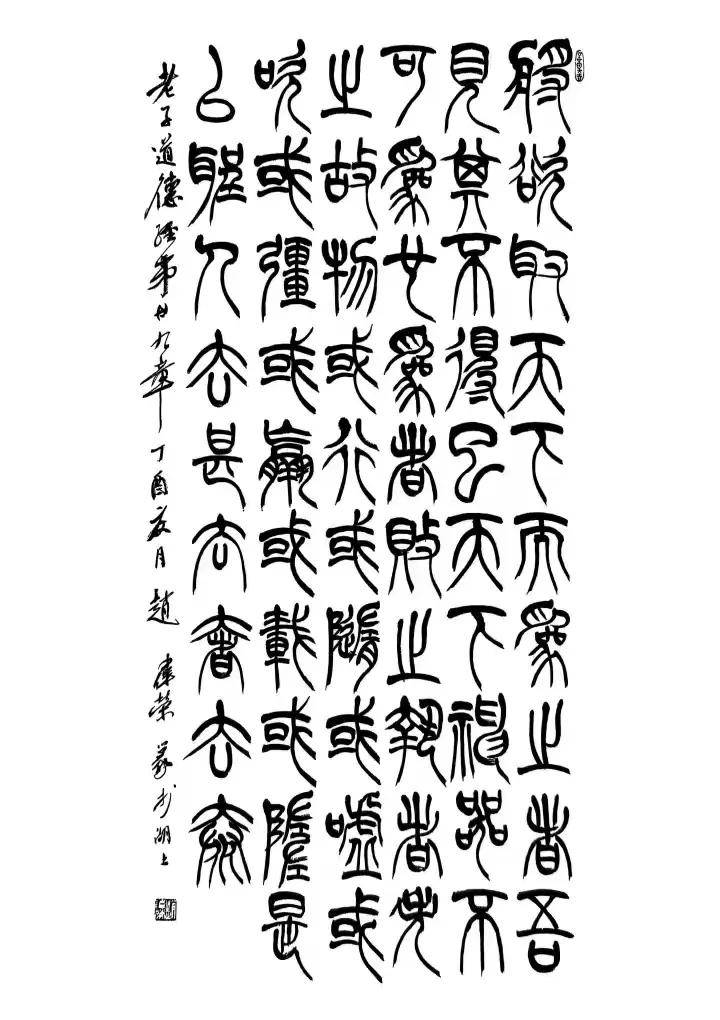 將欲取天下而爲之者吾
見其不得已天下神器不
可爲也爲者敗之執者失
之故物或行或隨或噓或
吹或彊或羸或載或隳是
以聖人去甚去奢去泰
老子道德經第廿九章丁酉夏月趙建榮篆於湖上